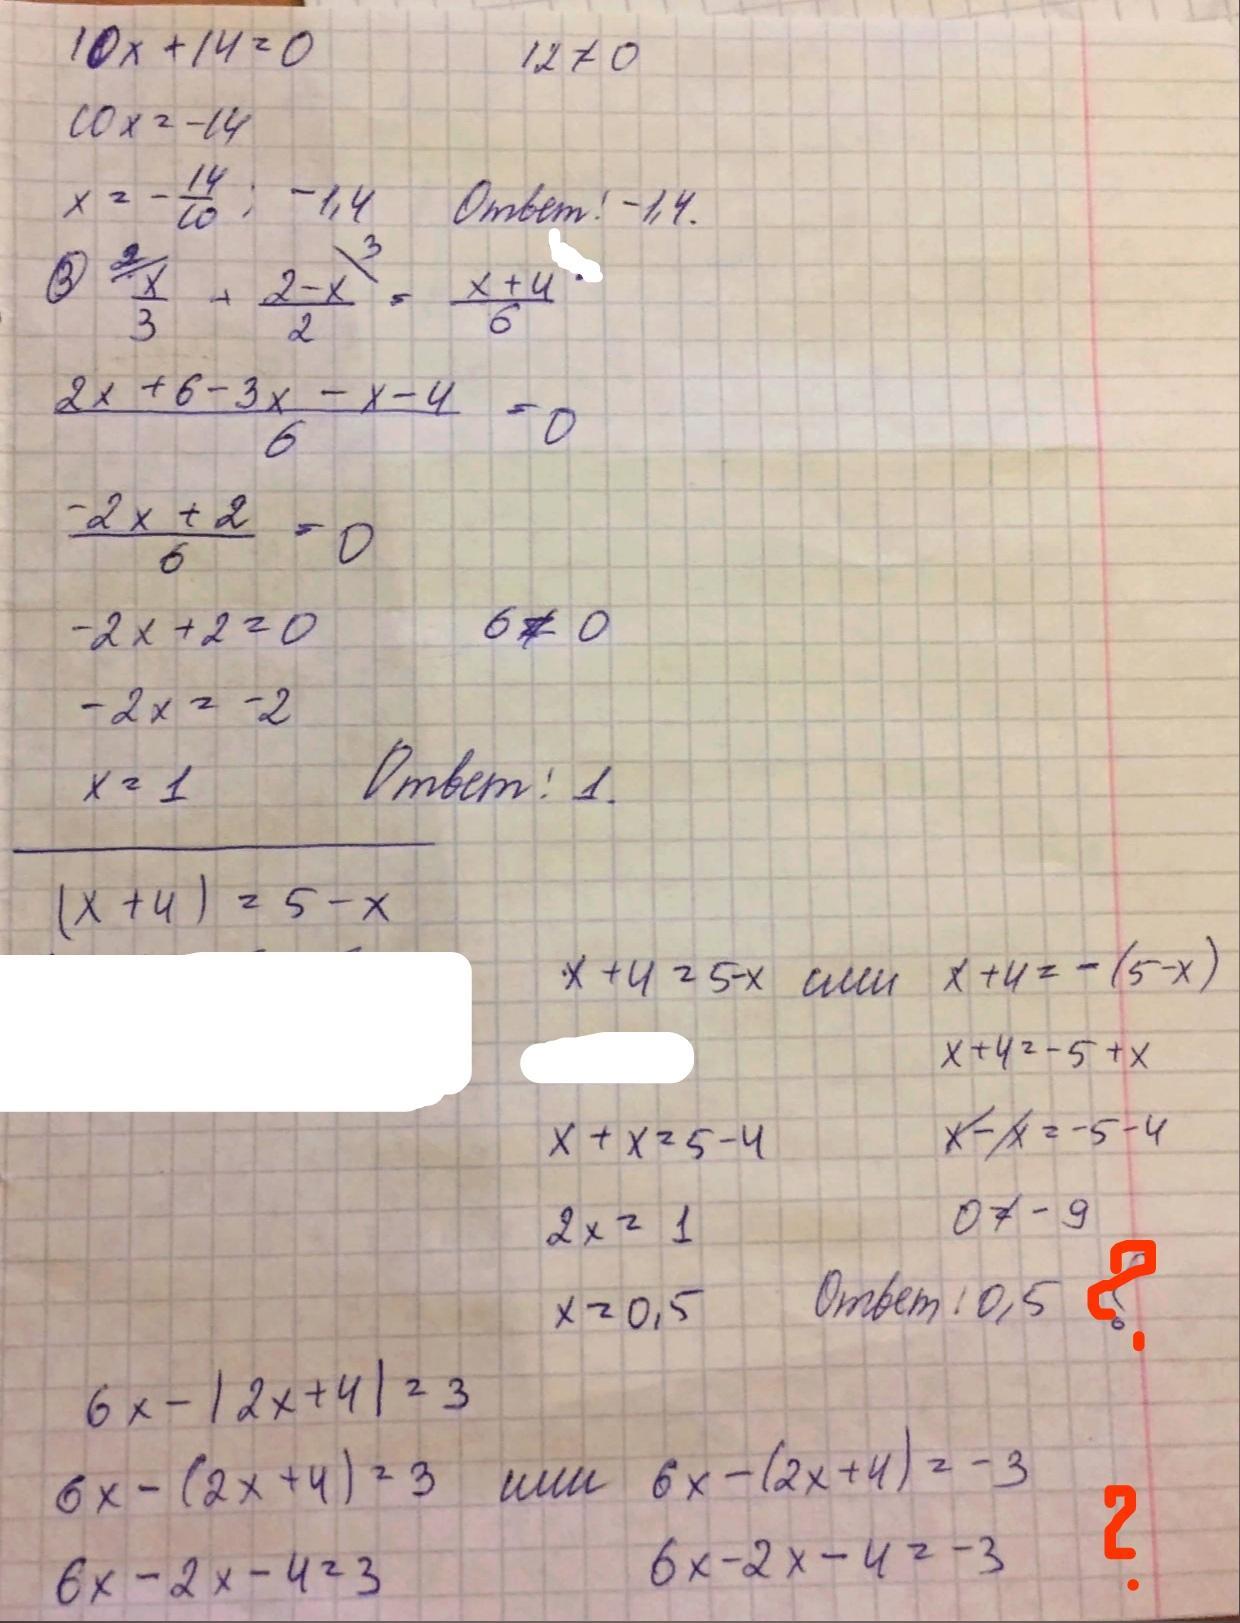 10x + 14 = 0   12 ≠ 0
10x = -14
x = -14/10; -1,4   Ответ: -1,4.
③ 2 x/3 + (2-x)/2 3 = (x+4)/6
(2x + 6 - 3x - x - 4)/6 = 0
(-2x + 2)/6 = 0
-2x + 2 = 0   6 ≠ 0
-2x = -2
x = 1   Ответ: 1.
|x + 4| = 5 - x
x + 4 = 5 - x или x + 4 = -(5 - x)
x + 4 = -5 + x
x + x = 5 - 4   x - x = -5 - 4
2x = 1   0 ≠ -9
x = 0,5   Ответ: 0,5 ?
6x - |2x + 4| = 3
6x - (2x + 4) = 3 или 6x - (2x + 4) = -3
6x - 2x - 4 = 3   6x - 2x - 4 = -3 ?